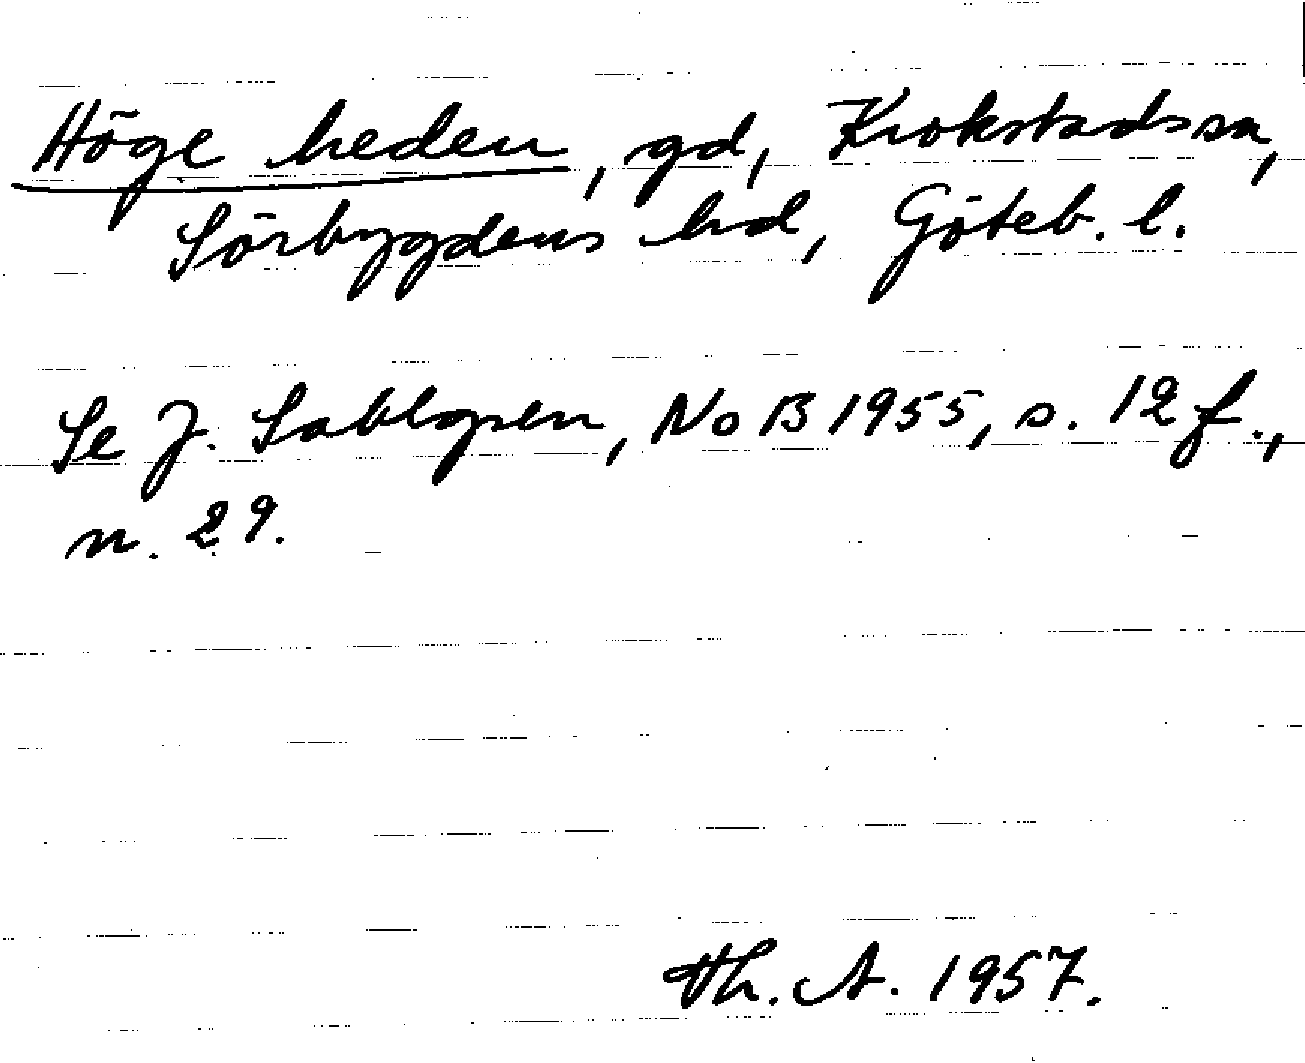 Högeheden, gd, Krokstads sn,
Sörbygdens hd, Göteb. l.
Se J. Sahlgren, NoB 1955, s. 12 f.,
n. 29.
Th. A. 1957.